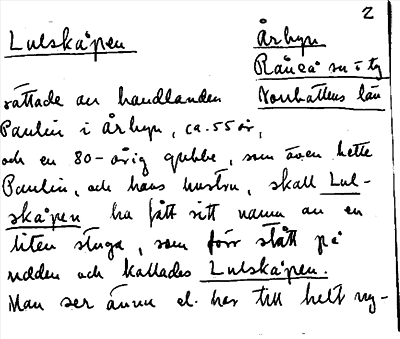 2
Lulskåpen Årbyn
Råneå sn i ty
Norrbottens län
rättade av handlanden
Paulin i Årbyn, ca. 55 år,
och en 80-årig gubbe, som även hette
Paulin, och hans hustru, skall Lul-
skåpen ha fått sitt namn av en
liten stuga, som förr stått på
udden och kallades Lulskåpen.
Man ser ännu el. har till helt ny-